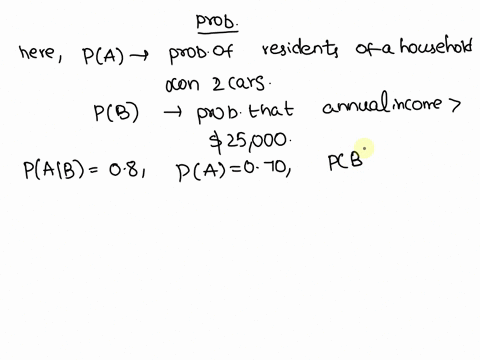 prob.
here, P(A) → prob. of residents of a household
own 2 cars.
P(B) → prob. that annual income >
$25,000.
P(A|B) = 0.8, P(A) = 0.70, P(B